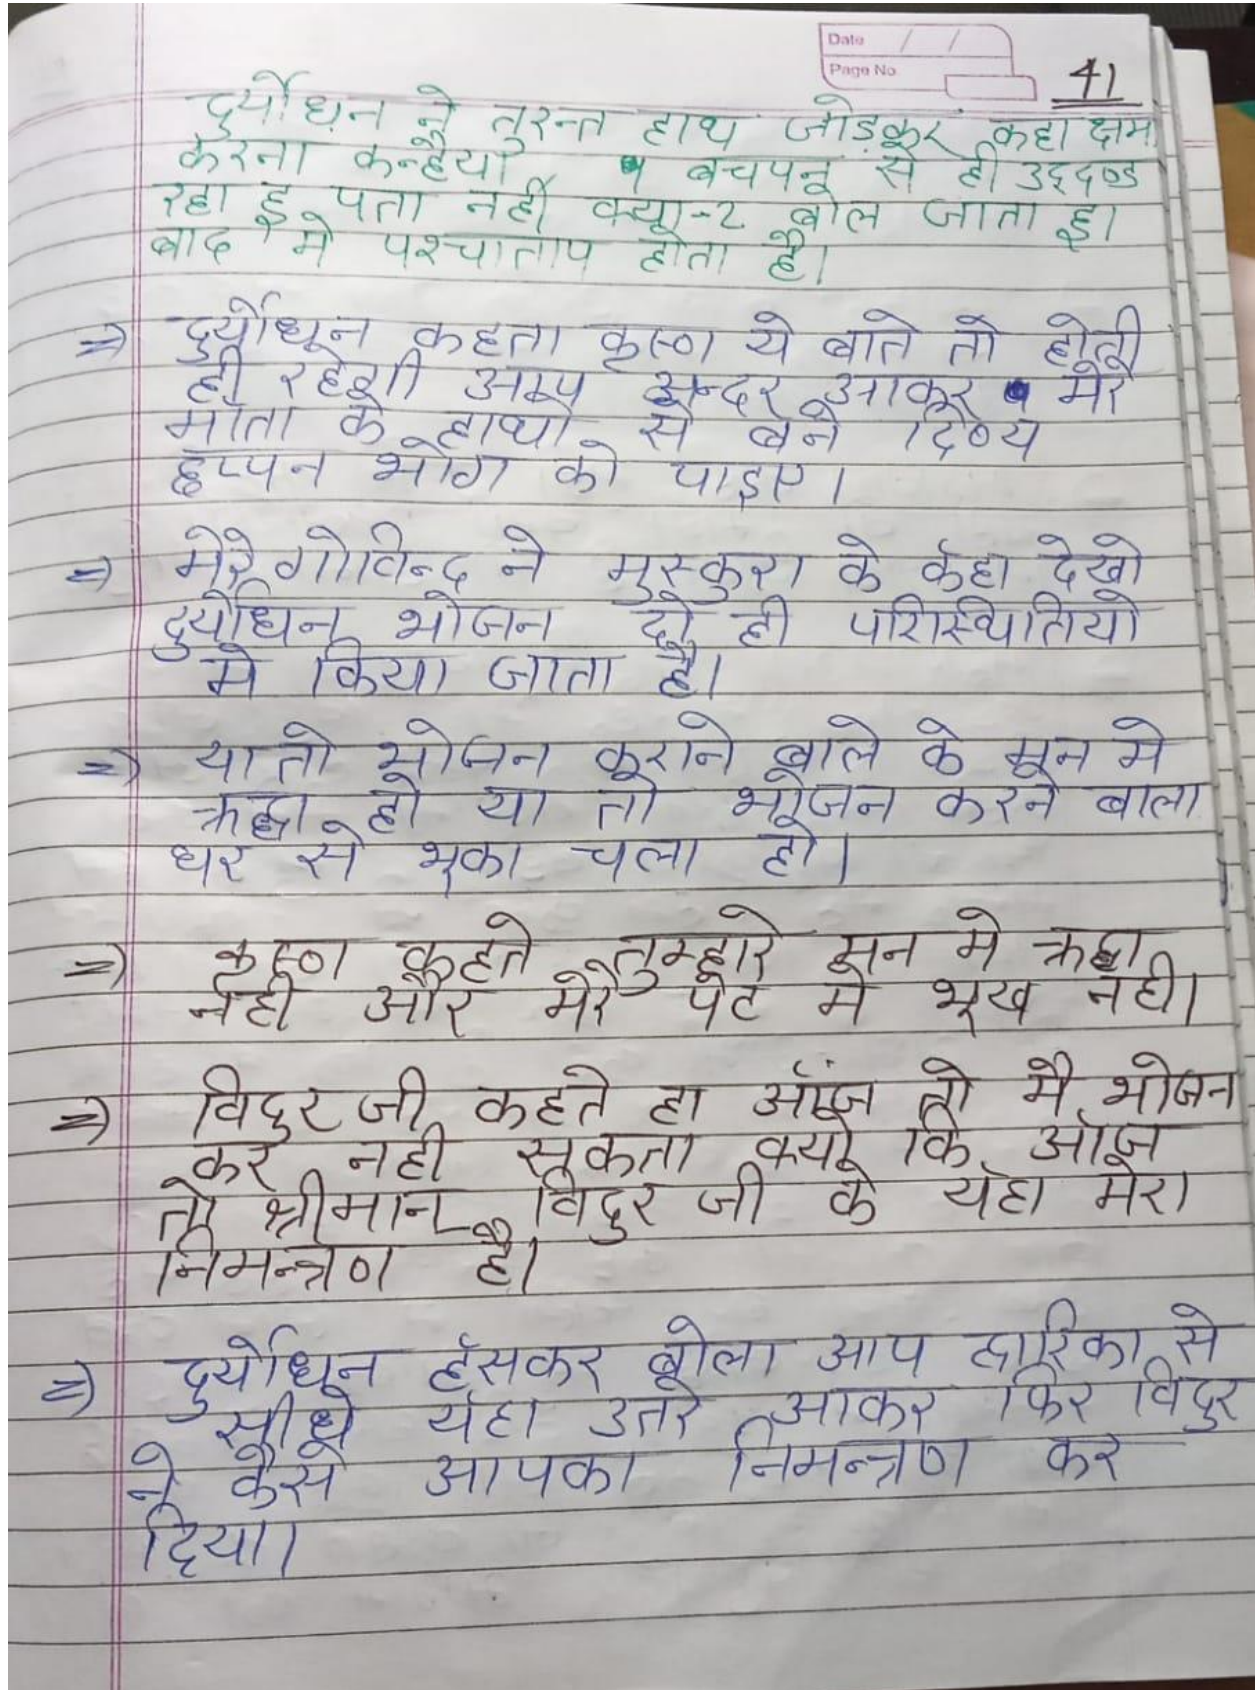 Date / /
Page No
41
दुर्योधन ने तुरन्त हाथ जोड़कर कहा क्षमा
करना कन्हैया बचपन से ही उद्दण्ड
रहा हु पता नही क्या-2 बोल जाता हु।
बाद मे पश्चाताप होता है।
⇒ दुर्योधन कहता कृष्ण ये बाते तो होती
ही रहेगी आप अन्दर आकर मेरे
माता के हाथो से बने दिव्य
छप्पन भोग को पाइए।
⇒ मेरे गोविन्द ने मुस्कुरा के कहा देखो
दुर्योधन भोजन दो ही परिस्थितियो
मे किया जाता है।
⇒ या तो भोजन कराने बाले के मन मे
श्रद्धा हो या तो भोजन करने बाला
घर से भूका चला हो।
⇒ कृष्ण कहते तुम्हारे मन मे श्रद्धा
नही और मेरे पेट मे भूख नही।
⇒ विदुर जी कहते हा आज तो मै भोजन
कर नही सकता क्यो कि आज
तो श्रीमान विदुर जी के यहा मेरा
निमन्त्रण है।
⇒ दुर्योधन हँसकर बोला आप द्वारिका से
सीधे यहा उतरे आकर फिर विदुर
ने कैसे आपका निमन्त्रण कर
दिया।